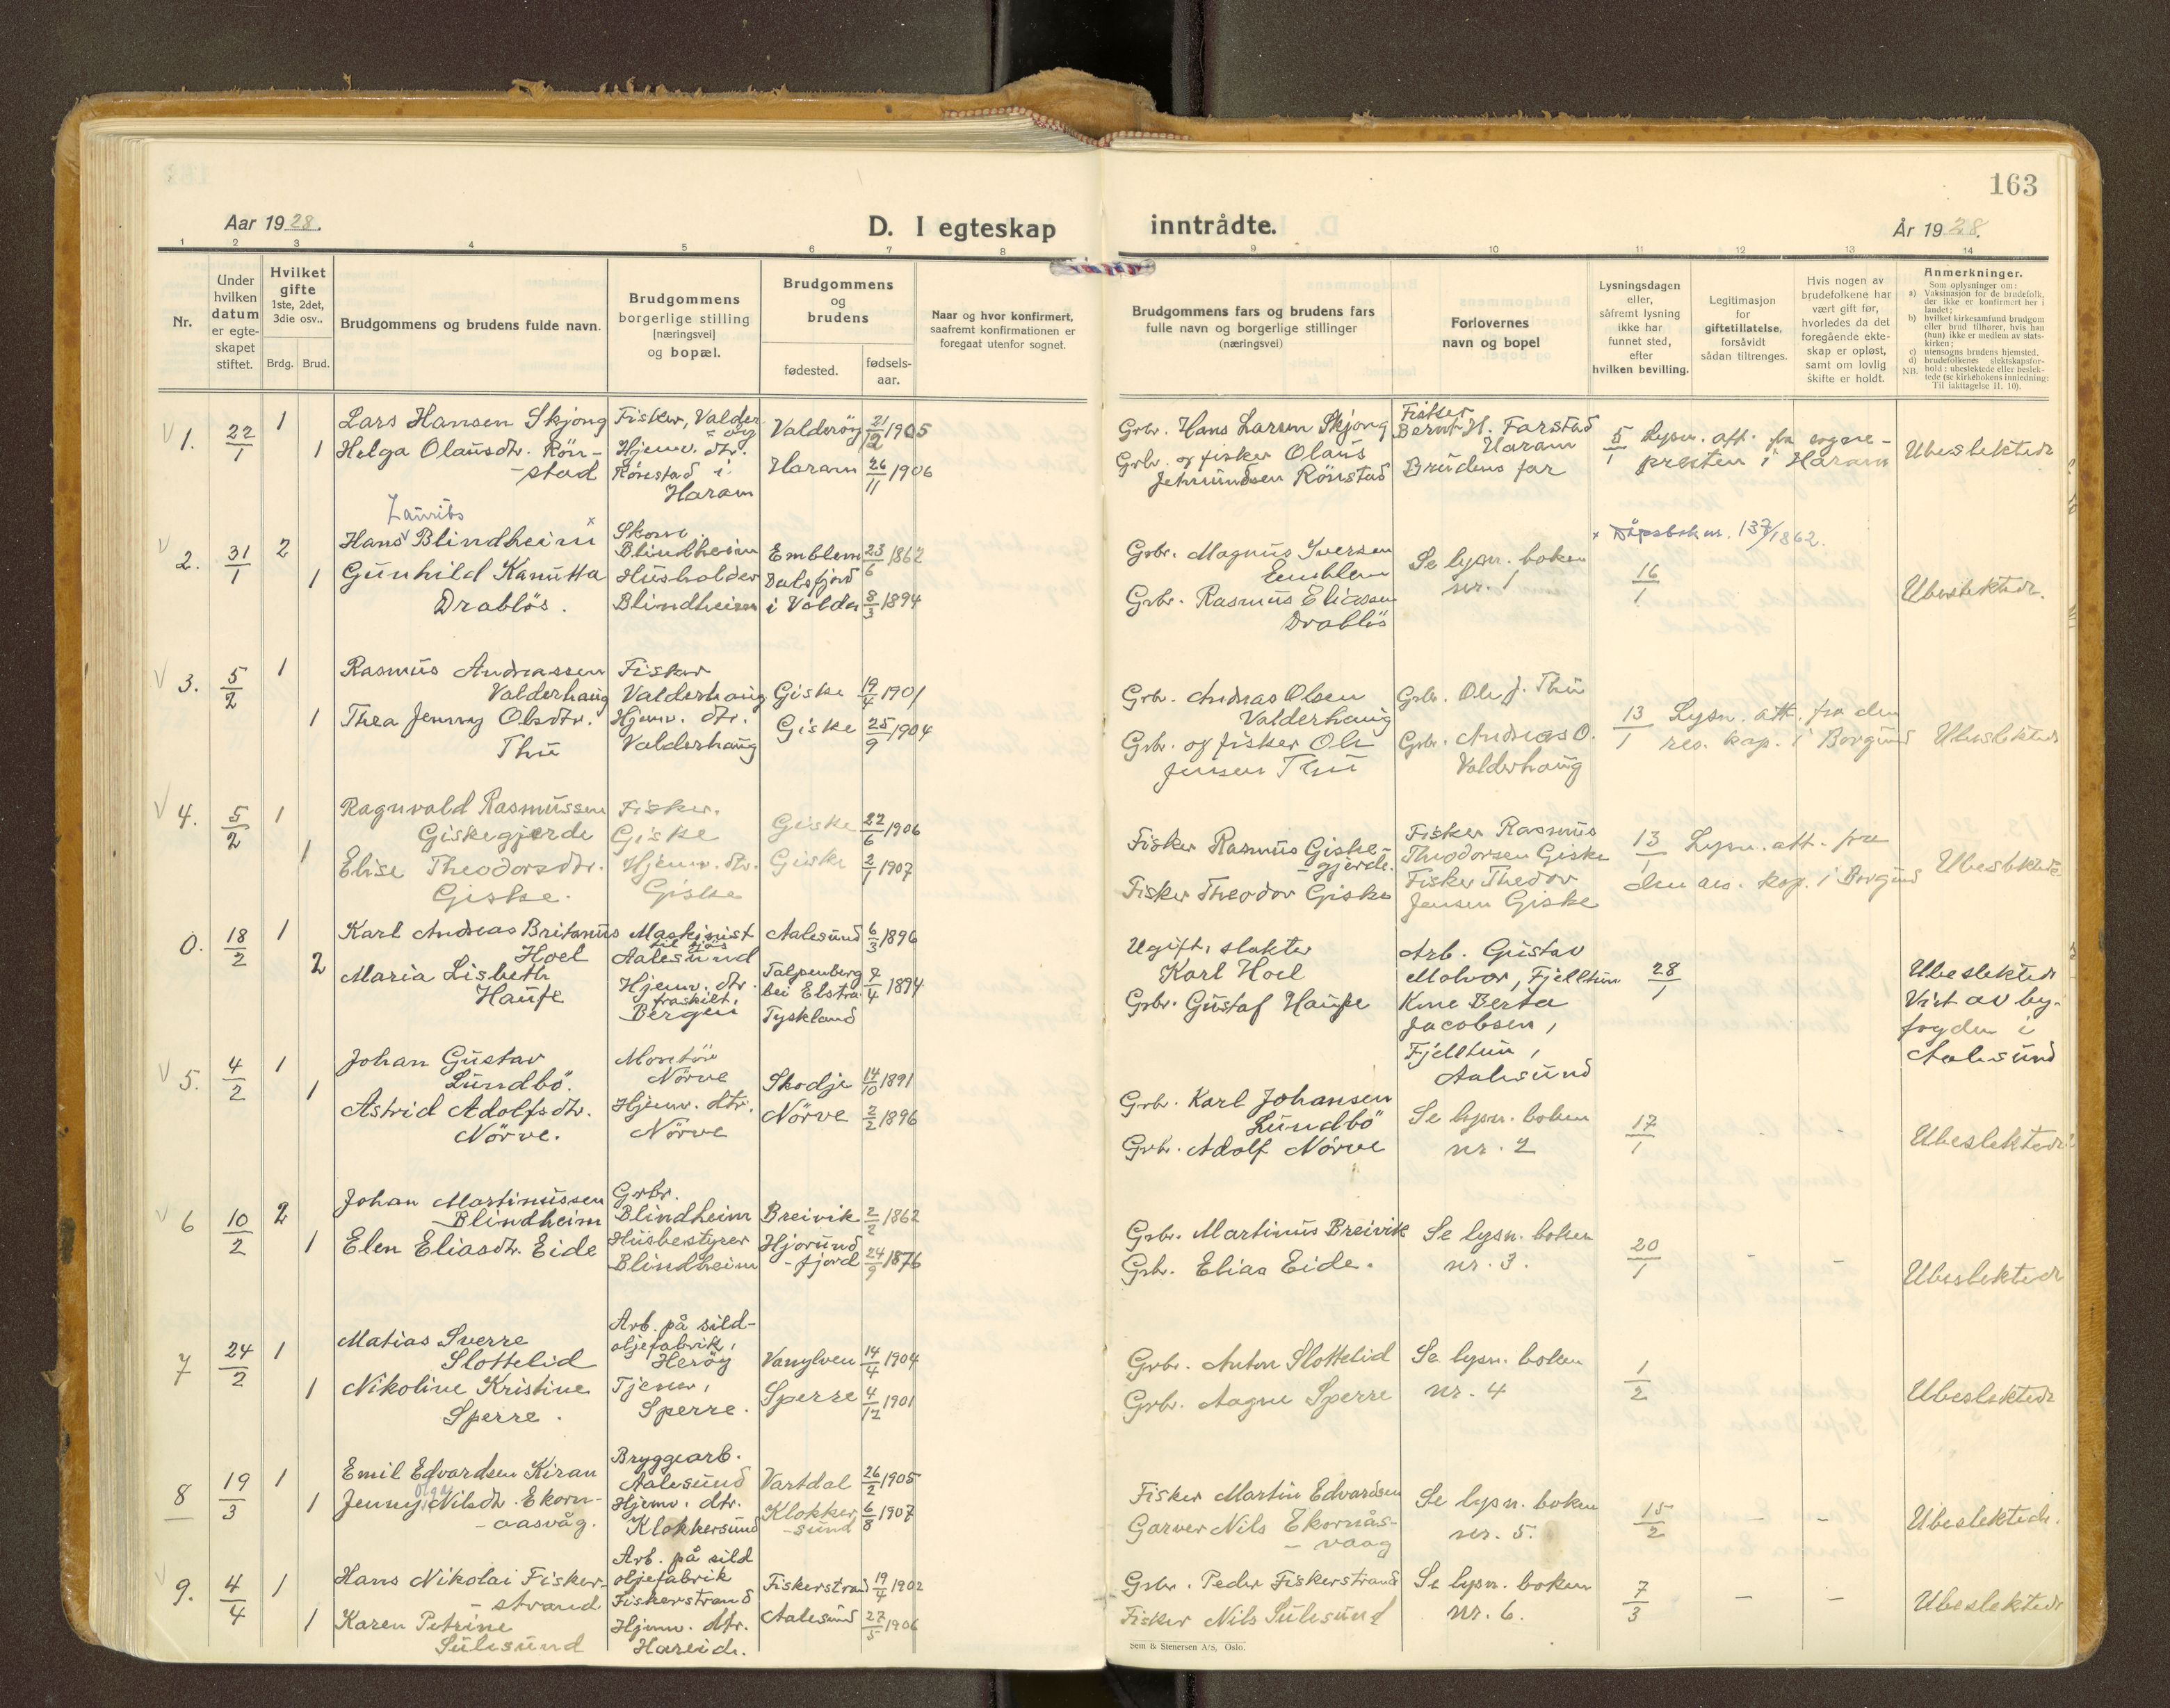 163
Aar 1928.
D. I egteskap
inntrådte.
År 1928.
1 2 3 4 5 6 7 8 9 10 11 12 13 14
Nr.
Under
hvilken
datum
er egte-
skapet
stiftet.
Hvilket
gifte
1ste, 2det,
3die osv..
Brdg. Brud.
Brudgommens og brudens fulde navn.
Brudgommens
borgerlige stilling
[næringsvei]
og bopæl.
Brudgommens
og
brudens
fødested.
fødsels-
aar.
Naar og hvor konfirmert,
saafremt konfirmationen er
foregaat utenfor sognet.
Brudgommens fars og brudens fars
fulle navn og borgerlige stillinger
(næringsvei)
Forlovernes
navn og bopel
Lysningsdagen
eller,
såfremt lysning
ikke har
funnet sted,
efter
hvilken bevilling.
Legitimasjon
for
giftetillatelse,
forsåvidt
sådan tiltrenges.
Hvis nogen av
brudefolkene har
vært gift før,
hvorledes da det
foregående ekte-
skap er opløst,
samt om lovlig
skifte er holdt.
Anmerkninger.
Som oplysninger om:
a) Vaksinasjon for de brudefolk,
der ikke er konfirmert her i
landet;
b) hvilket kirkesamfund brudgom
eller brud tilhører, hvis han
(hun) ikke er medlem av stats-
kirken;
c) utensogns brudens hjemsted.
d) brudefolkenes slektskapsfor-
NB. hold: ubeslektede eller beslek-
tede (se kirkebokens innledning:
Til iakttagelse II, 10).
1. 22/1 1
Lars Hansen Skjong
Fisker, Valder-
öy
Valderöy 21/12 1905
1 Helga Olausdtr. Rön-
-stad
Hjemv. dtr.
Rönstad i
Haram
Haram 26/11 1906
Grbr. Hans Larsen Skjong
Grbr. og fisker Olaus
Jetmundsen Rönstad
Fisker
Bernt H. Farstad
Haram
Brudens far
5/1 Lysn. att. fra sogne-
presten i Haram
Ubeslektede
2. 31/1 2
Laurits
Hans Blindheim x
Skom.
Blindheim
Emblem 23/6 1862
1 Gunhild Kanutta
Drablös.
Husholder
Blindheim
Dalsfjord
i Volda 8/3 1894
Grbr. Magnus Iversen
Emblem
Grbr. Rasmus Eliassen
Drablös
Se lysn. boken
nr. 1
x Dåpsbok nr. 137/1862.
16/1
Ubeslektede.
3. 5/2 1
Rasmus Andreassen
Valderhaug
Fisker
Valderhaug
Giske 19/4 1901
1 Thea Jenny Olsdtr.
Thu
Hjemv. dtr.
Valderhaug
Giske 25/9 1904
Grbr. Andreas Olsen
Valderhaug
Grbr. og fisker Ole
Jensen Thu
Grbr. Ole J. Thu
Grbr. Andreas O.
Valderhaug
13/1 Lysn. att. fra den
res. kap. i Borgund
Ubeslektede
4. 5/2 1
Ragnvald Rasmussen
Giskegjerde
Fisker.
Giske
Giske 22/6 1906
1 Elise Theodorsdtr.
Giske.
Hjemv. dtr.
Giske
Giske 2/1 1907
Fisker Rasmus Giske-
-gjerde.
Fisker Theodor Giske
Fisker Rasmus
Theodorsen Giske
Fisker Thedor
Jensen Giske
13/1 Lysn. att. fra
den res. kap. i Borgund
Ubeslektede
0. 18/2 1
Karl Andreas Britanus
Hoel
Maskinist
til sjös
Aalesund
Aalesund 6/3 1896
2 Maria Lisbeth
Haufe
Hjemv. dtr.
fraskilt.
Bergen
Talpenberg
bei Elstra
Tyskland
1894
Ugift, slakter
Karl Hoel
Grbr. Gustaf Haufe
Arb. Gustav
Molvær, Fjelltun
Kone Berta
Jacobsen,
Fjelltun,
Aalesund
28/1
Ubeslektede
Viet av by-
fogden i
Aalesund
5. 4/2 1
Johan Gustav
Lundbö.
Montör
Nörve
Skodje 14/10 1891
1 Astrid Adolfsdtr.
Nörve.
Hjemv. dtr.
Nörve
Nörve 2/2 1896
Grbr. Karl Johansen
Lundbö
Grbr. Adolf Nörve
Se lysn. boken
nr. 2
17/1 - -
Ubeslektede
6 10/2 2
Johan Martinussen
Blindheim
Grbr.
Blindheim
Breivik 2/2 1862
1 Elen Eliasdtr. Eide
Husbestyrer
Blindheim
Hjorund
-fjord 24/9 1876
Grbr. Martinus Breivik
Grbr. Elias Eide.
Se lysn. boken
nr. 3.
20/1 - -
Ubeslektede
7 24/2 1
Matias Sverre
Slottelid
Arb. på sild-
oljefabrik,
Heröy
Vanylven 14/4 1904
1 Nikoline Kristine
Sperre.
Tjener,
Sperre.
Sperre 4/12 1901
Grbr. Anton Slottelid
Grbr. Aagne Sperre
Se lysn. boken
nr. 4
1/2
Ubeslektede
8 19/3 1
Emil Edvardsen Kiran
Bryggearb.
Aalesund
Vartdal 26/2 1905
Olga
1 Jenny Nilsdtr. Ekorn-
-aasvåg.
Hjemv. dtr.
Klokkersund
Klokker
-sund 6/8 1907
Fisker Martin Edvardsen
Garver Nils Ekornås-
-vaag
Se lysn. boken
nr. 5.
15/2 - -
Ubeslektede.
9. 4/4 1
Hans Nikolai Fisker-
-strand
Arb. på sild
oljefabrik
Fiskerstrand
Fiskerstrad 19/4 1902
1 Karen Petrine
Sulesund
Hjemv. dtr.
Hareide.
Aalesund 27/5 1906
Grbr. Peder Fiskerstrand
Fisker Nils Sulesund
Se lysn. boken
nr. 6.
7/3 - -
Ubeslektede
Sem & Stenersen A/S, Oslo.